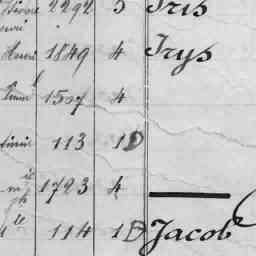 2292 5 Iris
Henri 1849 4 Irys
1507 4
113 1D
1723 4
114 1D Jacob